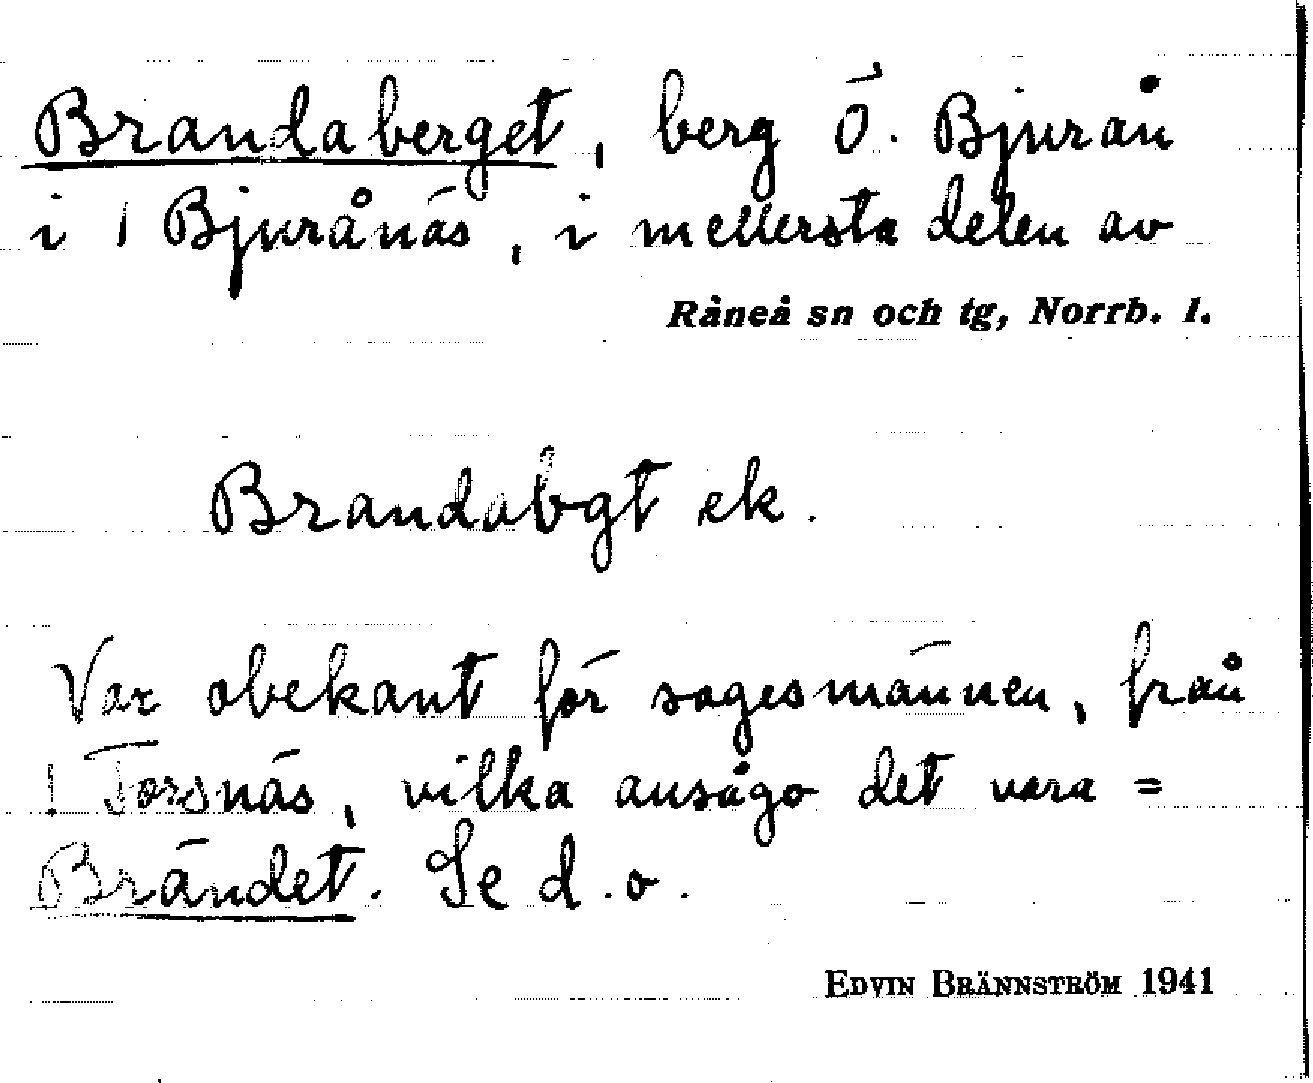 Brandaberget, berg Ö. Bjurån
i 1 Bjurånäs, i mellersta delen av
Råneå sn och tg, Norrb. l.
Brandabgt ek.
Var obekant för sagesmännen, från
1 Forsnäs, vilka ansågo det vara =
Brändet. Se d.o.
EDVIN BRÄNNSTRÖM 1941